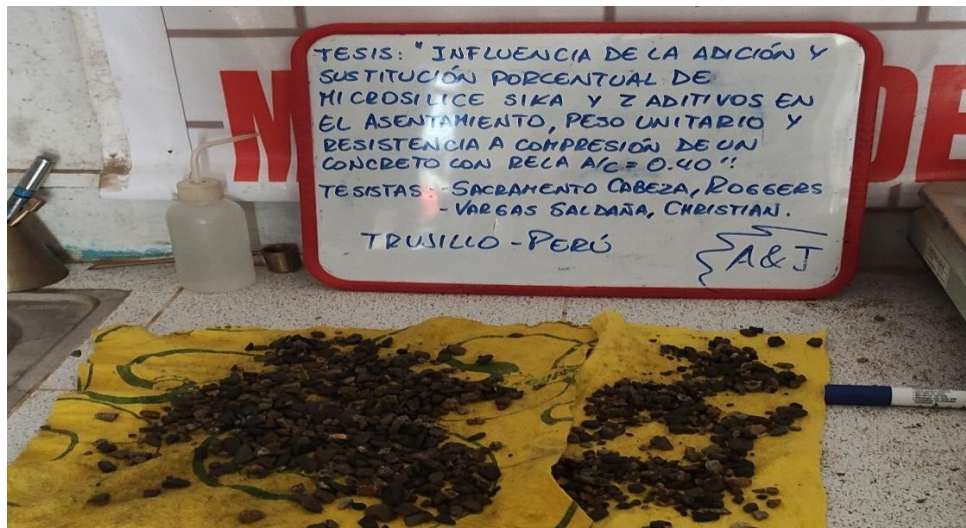 TESIS: "INFLUENCIA DE LA ADICIÓN Y
SUSTITUCIÓN PORCENTUAL DE
MICROSILICE SIKA Y 2 ADITIVOS EN
EL ASENTAMIENTO, PESO UNITARIO Y
RESISTENCIA A COMPRESIÓN DE UN
CONCRETO CON RELA A/C = 0.40".
TESISTAS: - SACRAMENTO CABEZA, ROGGERS
- VARGAS SALDAÑA, CHRISTIAN.
TRUJILLO - PERÚ
A & J
DE